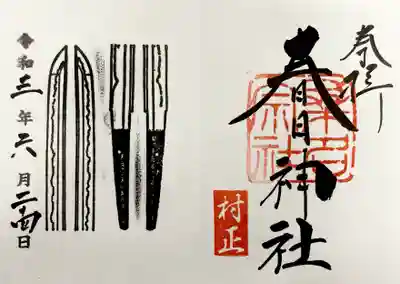 奉拝
春日神社
村正
令和三年六月二十四日